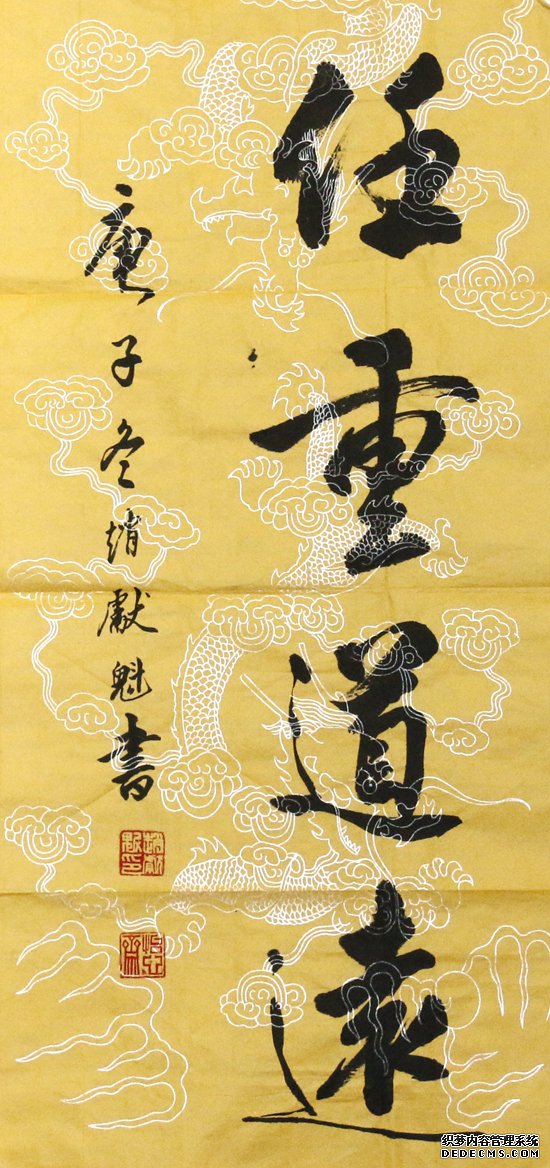 任重道遠
庚子冬趙獻魁書
趙獻魁印
织梦内容管理系统
DEDECMS.COM